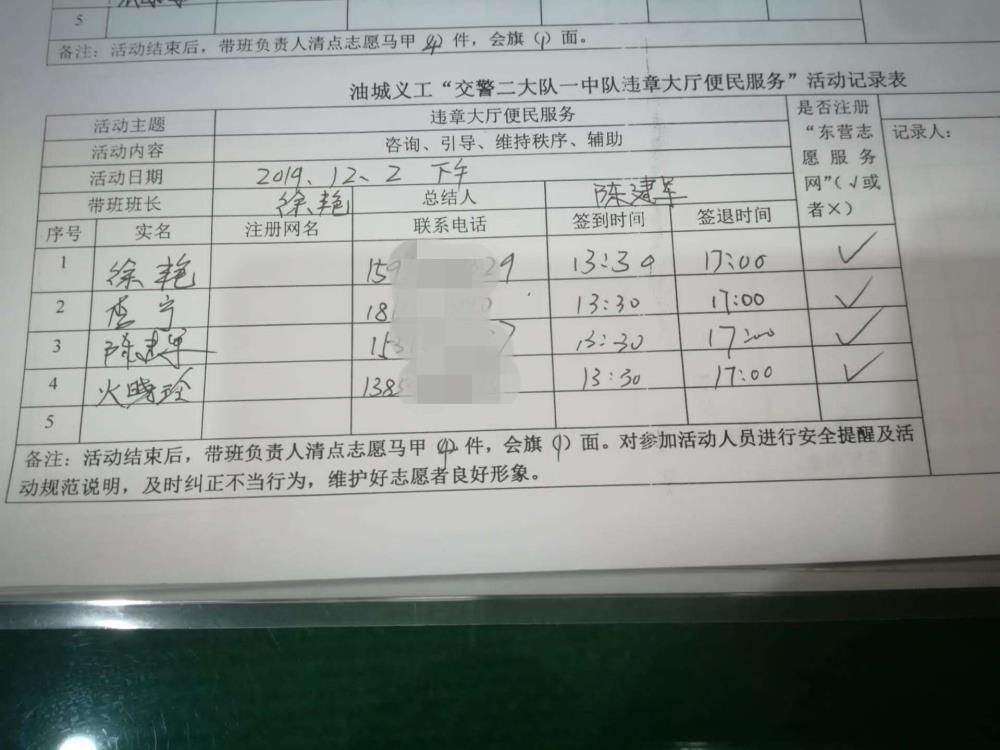 5
备注：活动结束后，带班负责人清点志愿马甲（4）件，会旗（1）面。
油城义工“交警二大队一中队违章大厅便民服务”活动记录表
活动主题 违章大厅便民服务 是否注册“东营志愿服务网”（√或者×） 记录人：
活动内容 咨询、引导、维持秩序、辅助
活动日期 2019、12、2 下午
带班班长 徐艳 总结人 陈建军
序号 实名 注册网名 联系电话 签到时间 签退时间
1 徐艳 159 29 13:30 17:00 √
2 李宁 18 13:30 17:00 √
3 陈建军 153 7 13:30 17:00 √
4 火晓玲 138 13:30 17:00 √
5
备注：活动结束后，带班负责人清点志愿马甲（4）件，会旗（1）面。对参加活动人员进行安全提醒及活
动规范说明，及时纠正不当行为，维护好志愿者良好形象。